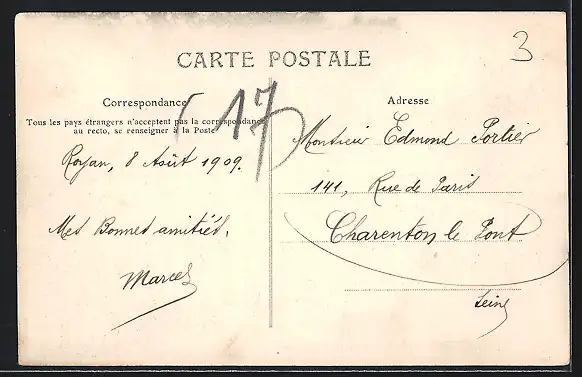 3
CARTE POSTALE
Correspondance
Tous les pays étrangers n'acceptent pas la correspondance
au recto, se renseigner à la Poste
17
Royan, 8 Août 1909.
Mes Bonnes amitiés,
Marcel
Adresse
Monsieur Edmond Portier
141, Rue de Paris
Charenton le Pont
Seine